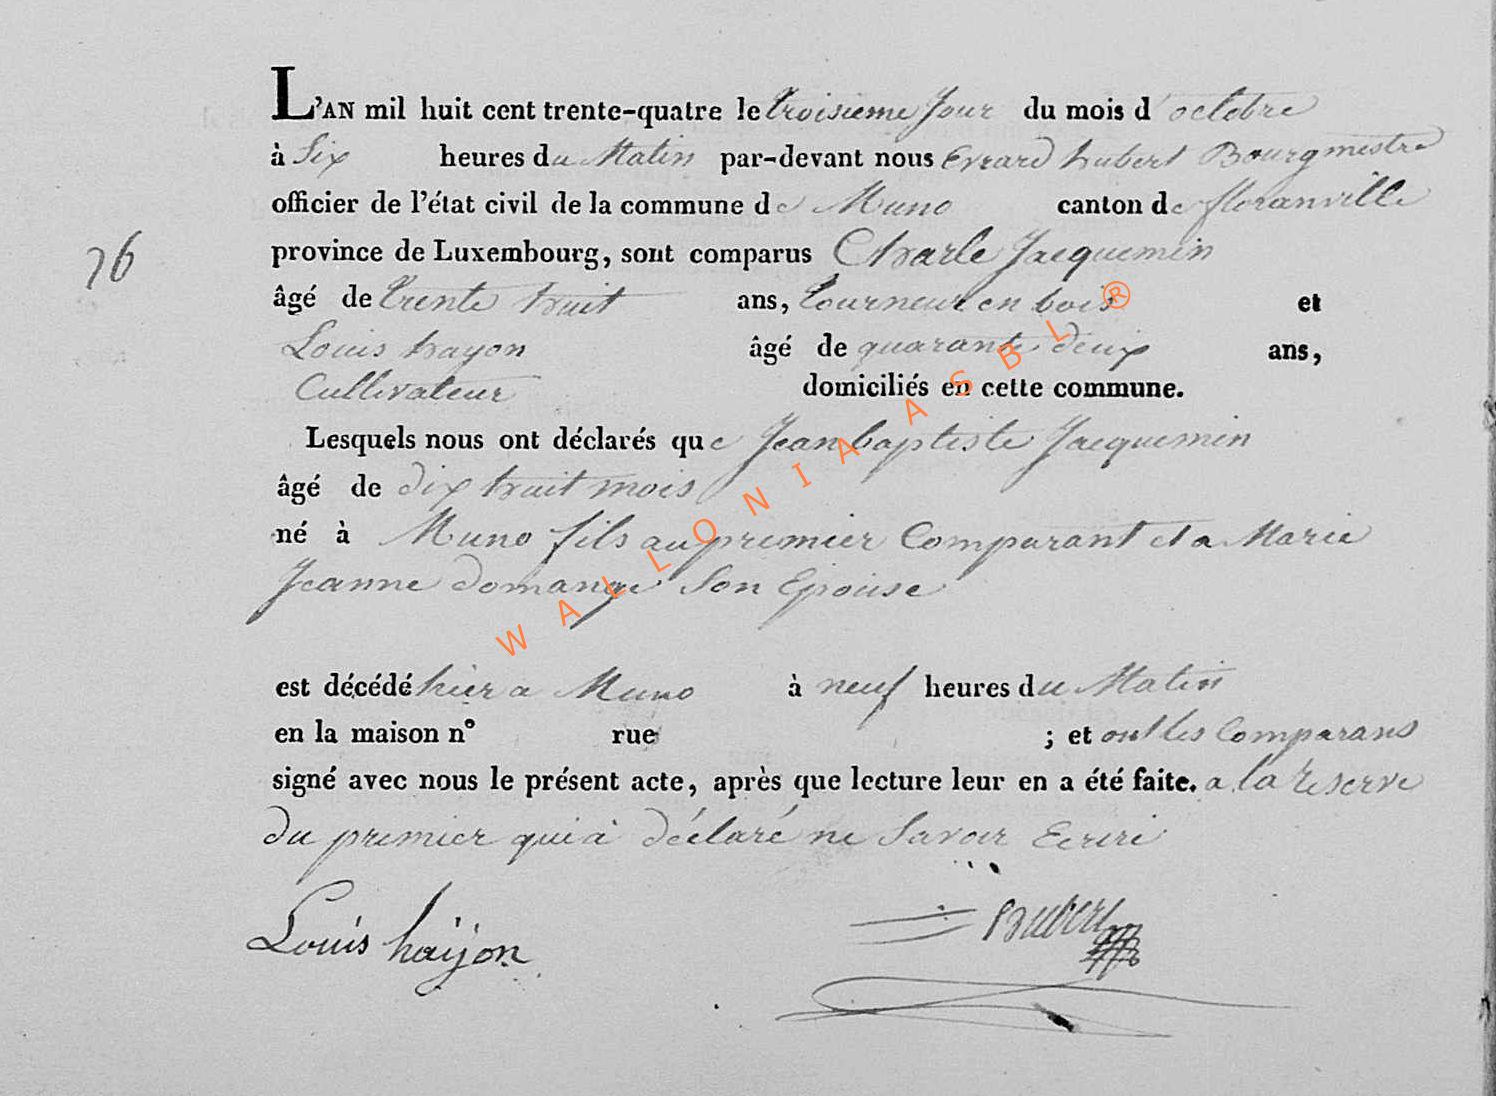 L'AN mil huit cent trente-quatre le troisieme Jour du mois d'octobre
à Six heures du Matin par-devant nous Evrard hubert Bourgmestre
officier de l'état civil de la commune de Muno canton de floranville
province de Luxembourg, sont comparus Charle Jacquemin
76
âgé de trente huit ans, tourneur en bois et
Louis hayon âgé de quarante deux ans,
Cultivateur domiciliés en cette commune.
Lesquels nous ont déclarés que Jean baptiste Jacquemin
âgé de dix huit mois
né à Muno fils au premier Comparant et a Marie
Jeanne domange Son Epouse
est décédé hier a Muno à neuf heures du Matin
en la maison n° rue ; et ont les Comparans
signé avec nous le présent acte, après que lecture leur en a été faite. a la reserve
du premier qui à déclaré ne Savoir Ecrire
Louis haijon hubert
WALLONIA ASBL ®